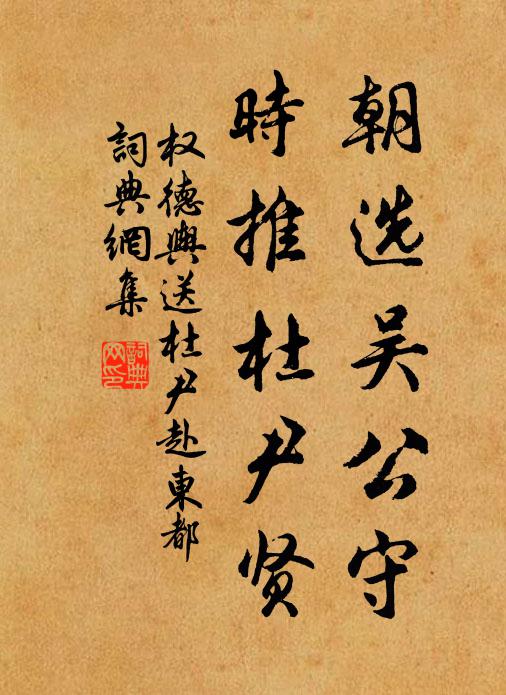 朝选吴公守
時推杜尹贤
权德輿送杜尹赴東都
詞典網集
詞典网印